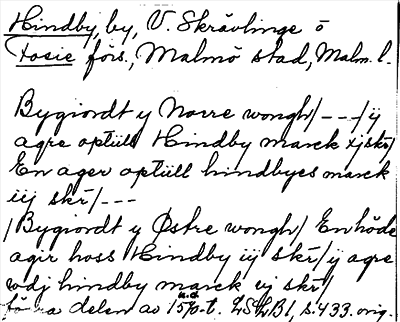 Hindby, by, V. Skrävlinge o
Fosie förs., Malmö stad, Malm. l.
Bygiordt y Norre wongh/---/ij
agre optill Hindby marck xj skr/
En ager optill hindbyes marck
iij skr/---
/Bygiordt y Østre wongh/ En høde
agir hoss Hindby iij skr/ij agre
wdj hindby marck vj skr/
förra delen av 1500-t. LSLB1, s. 433. orig.